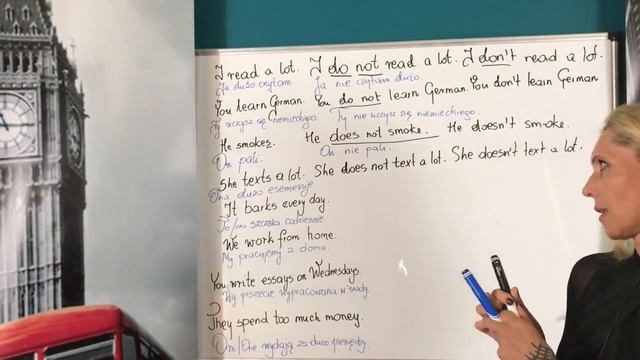 I read a lot. I do not read a lot. I don't read a lot.
Ja dużo czytam Ja nie czytam dużo.
You learn German. You do not learn German. You don't learn German
Ty uczysz się niemieckiego. Ty nie uczysz się niemieckiego.
He smokes. He does not smoke. He doesn't smoke.
On pali. On nie pali.
She texts a lot. She does not text a lot. She doesn't text a lot.
Ona dużo esemesuje.
It barks every day.
To/ono szczeka codziennie.
We work from home.
My pracujemy z domu.
You write essays on Wednesdays.
Wy piszecie wypracowania w środy.
They spend too much money.
Oni/One wydają za dużo pieniędzy.